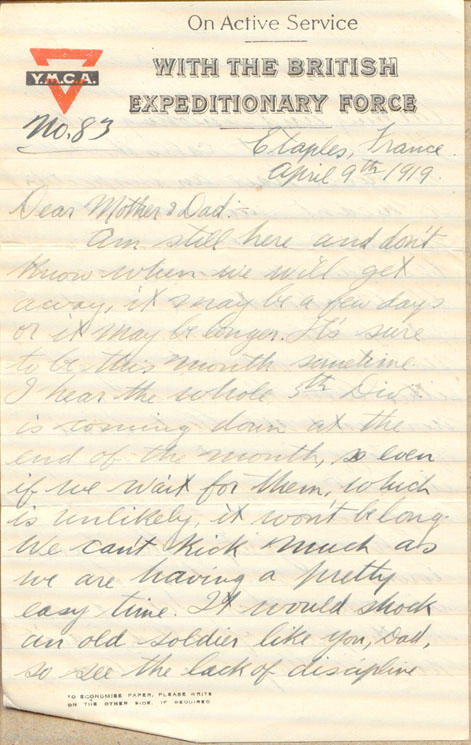 On Active Service
Y.M.C.A.
WITH THE BRITISH
EXPEDITIONARY FORCE
No. 83
Etaples, France
April 9th 1919.
Dear Mother & Dad:-
Am still here and don't
know when we will get
away, it may be a few days
or it may be longer. It's sure
to be this month sometime.
I hear the whole 5th Div.
is coming down at the
end of the month, so even
if we wait for them, which
is unlikely, it won't be long.
We can't kick much as
we are having a pretty
easy time. It would shock
an old soldier like you, Dad,
to see the lack of discipline
TO ECONOMISE PAPER, PLEASE WRITE
ON THE OTHER SIDE, IF REQUIRED